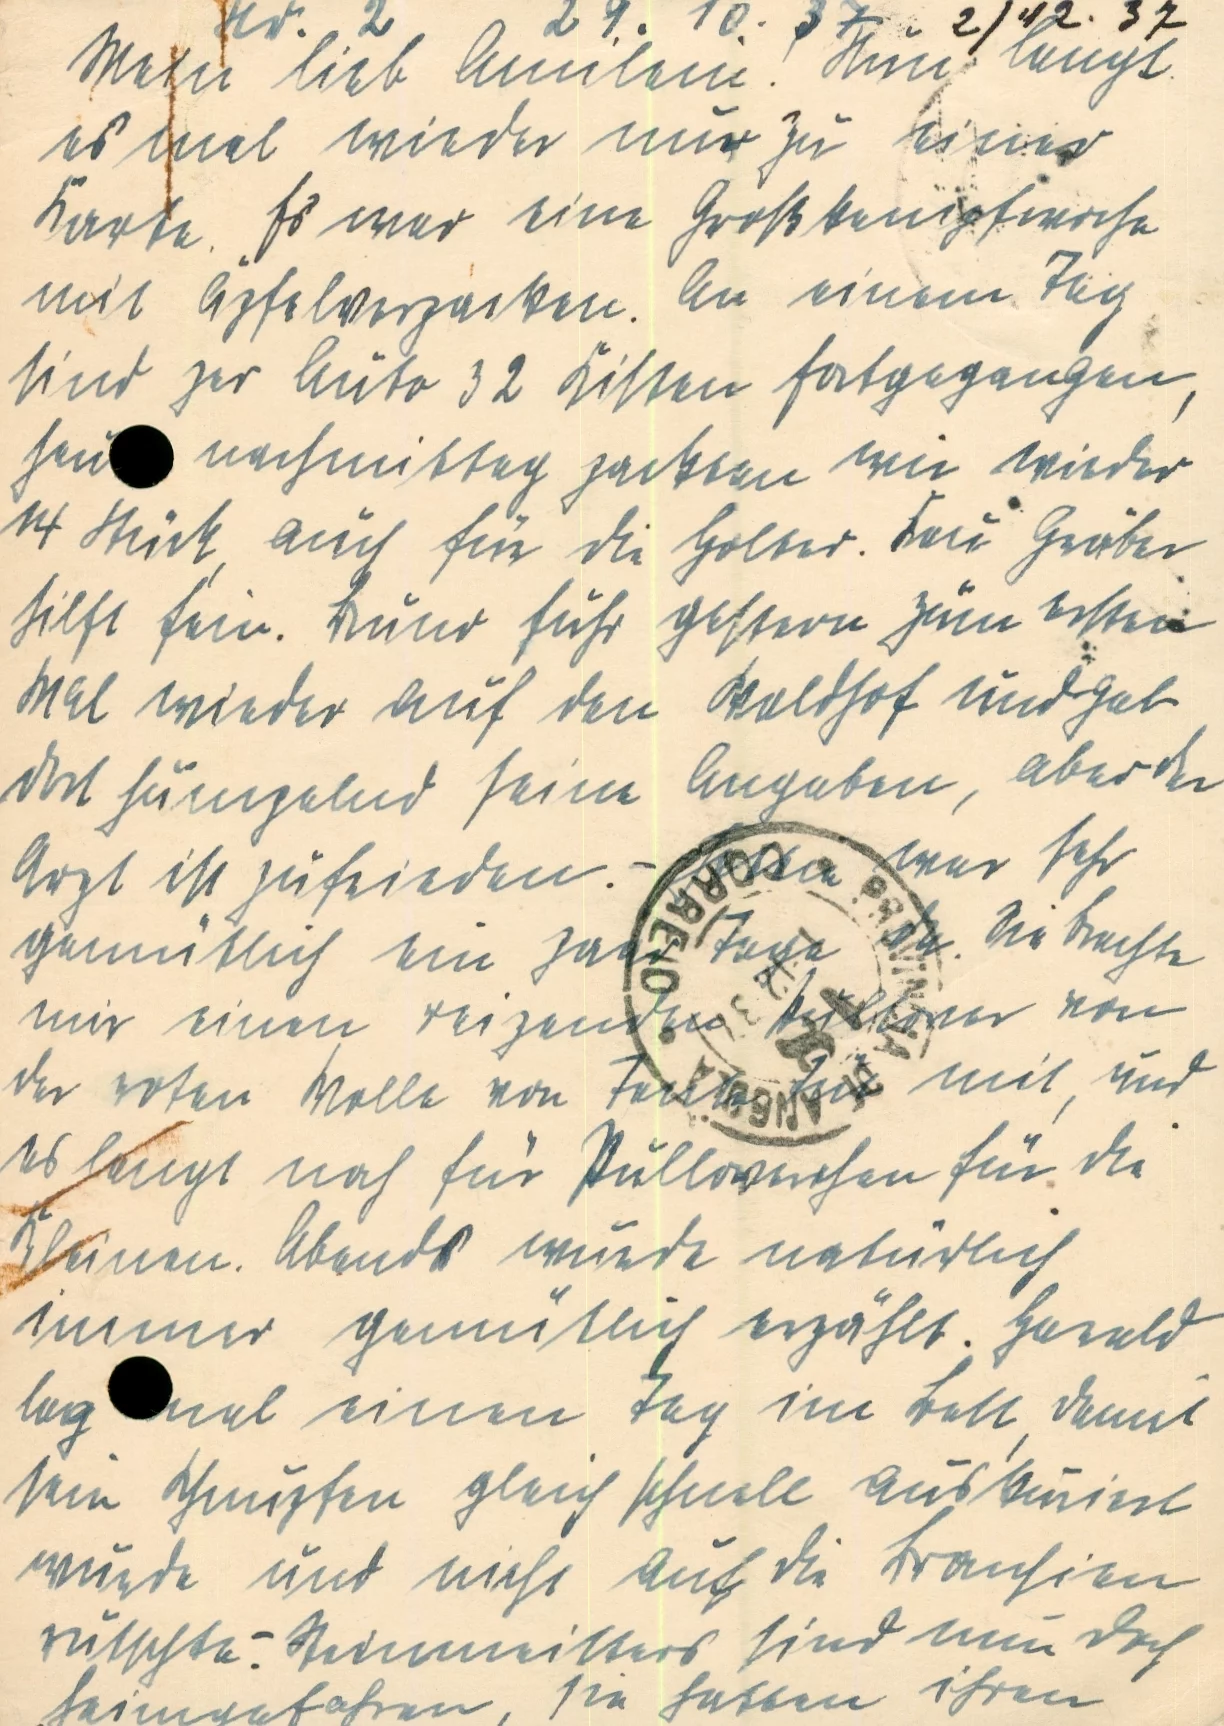 Nr. 2 29. 10. 37 2/12. 37
Mein lieb Annilein! Nun langt
es mal wieder nur zu einer
Karte. Es war eine Großkampfwoche
mit Äpfelverpacken. An einem Tag
sind per Auto 32 Kisten fortgegangen,
heu nachmittag packten wir wieder
14 Stück, auch für die Holter. Frau Gräber
hilft fein. Bruno fuhr gestern zum ersten
Mal wieder auf den Waldhof und gab
dort humpelnd seine Angaben, aber der
Arzt ist zufrieden. - war sehr
gemütlich ein paar Tage da. Sie brachte
mir einen reizenden Pullover von
der roten Wolle von Tante mit, und
es langt noch für Pulloverchen für die
Kleinen. Abends wurde natürlich
immer gemütlich erzählt. Harald
lag mal einen Tag im Bett, damit
sein Schnupfen gleich schnell auskuriert
wurde und nicht auf die Bronchien
rutschte. - Steinmeisters sind nun doch
heimgefahren, sie hatten ihren
CORREIO
PROVINCIA DE ANGOLA